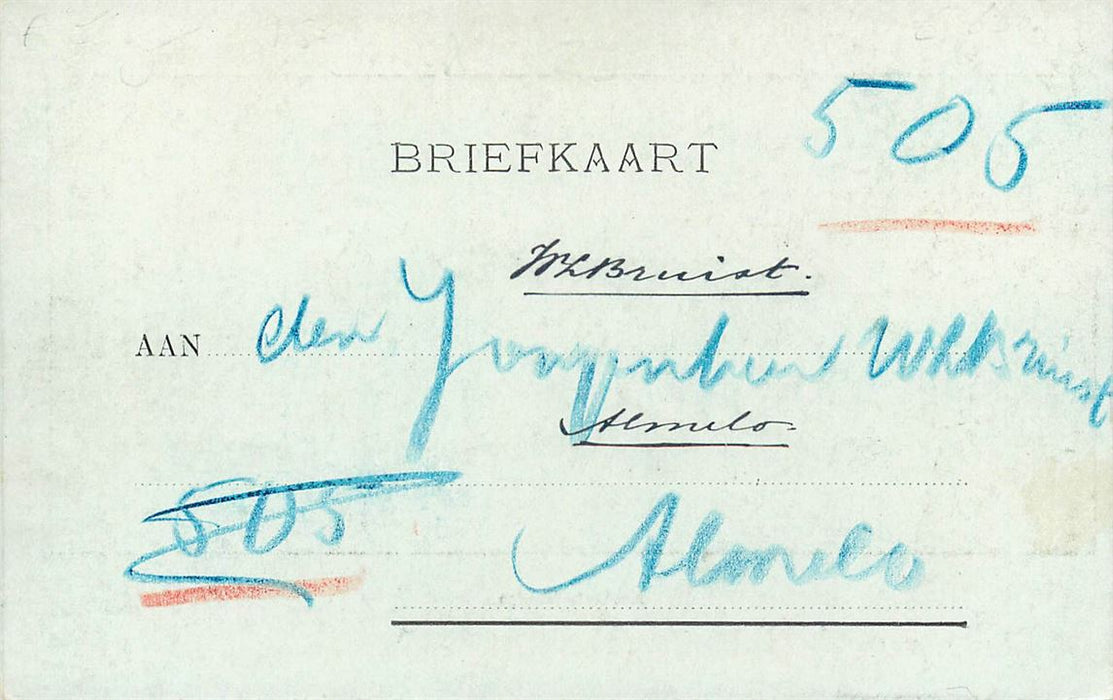 505
BRIEFKAART
WLBruist.
AAN den Jongenheer WLBruist
Almelo
505
Almelo